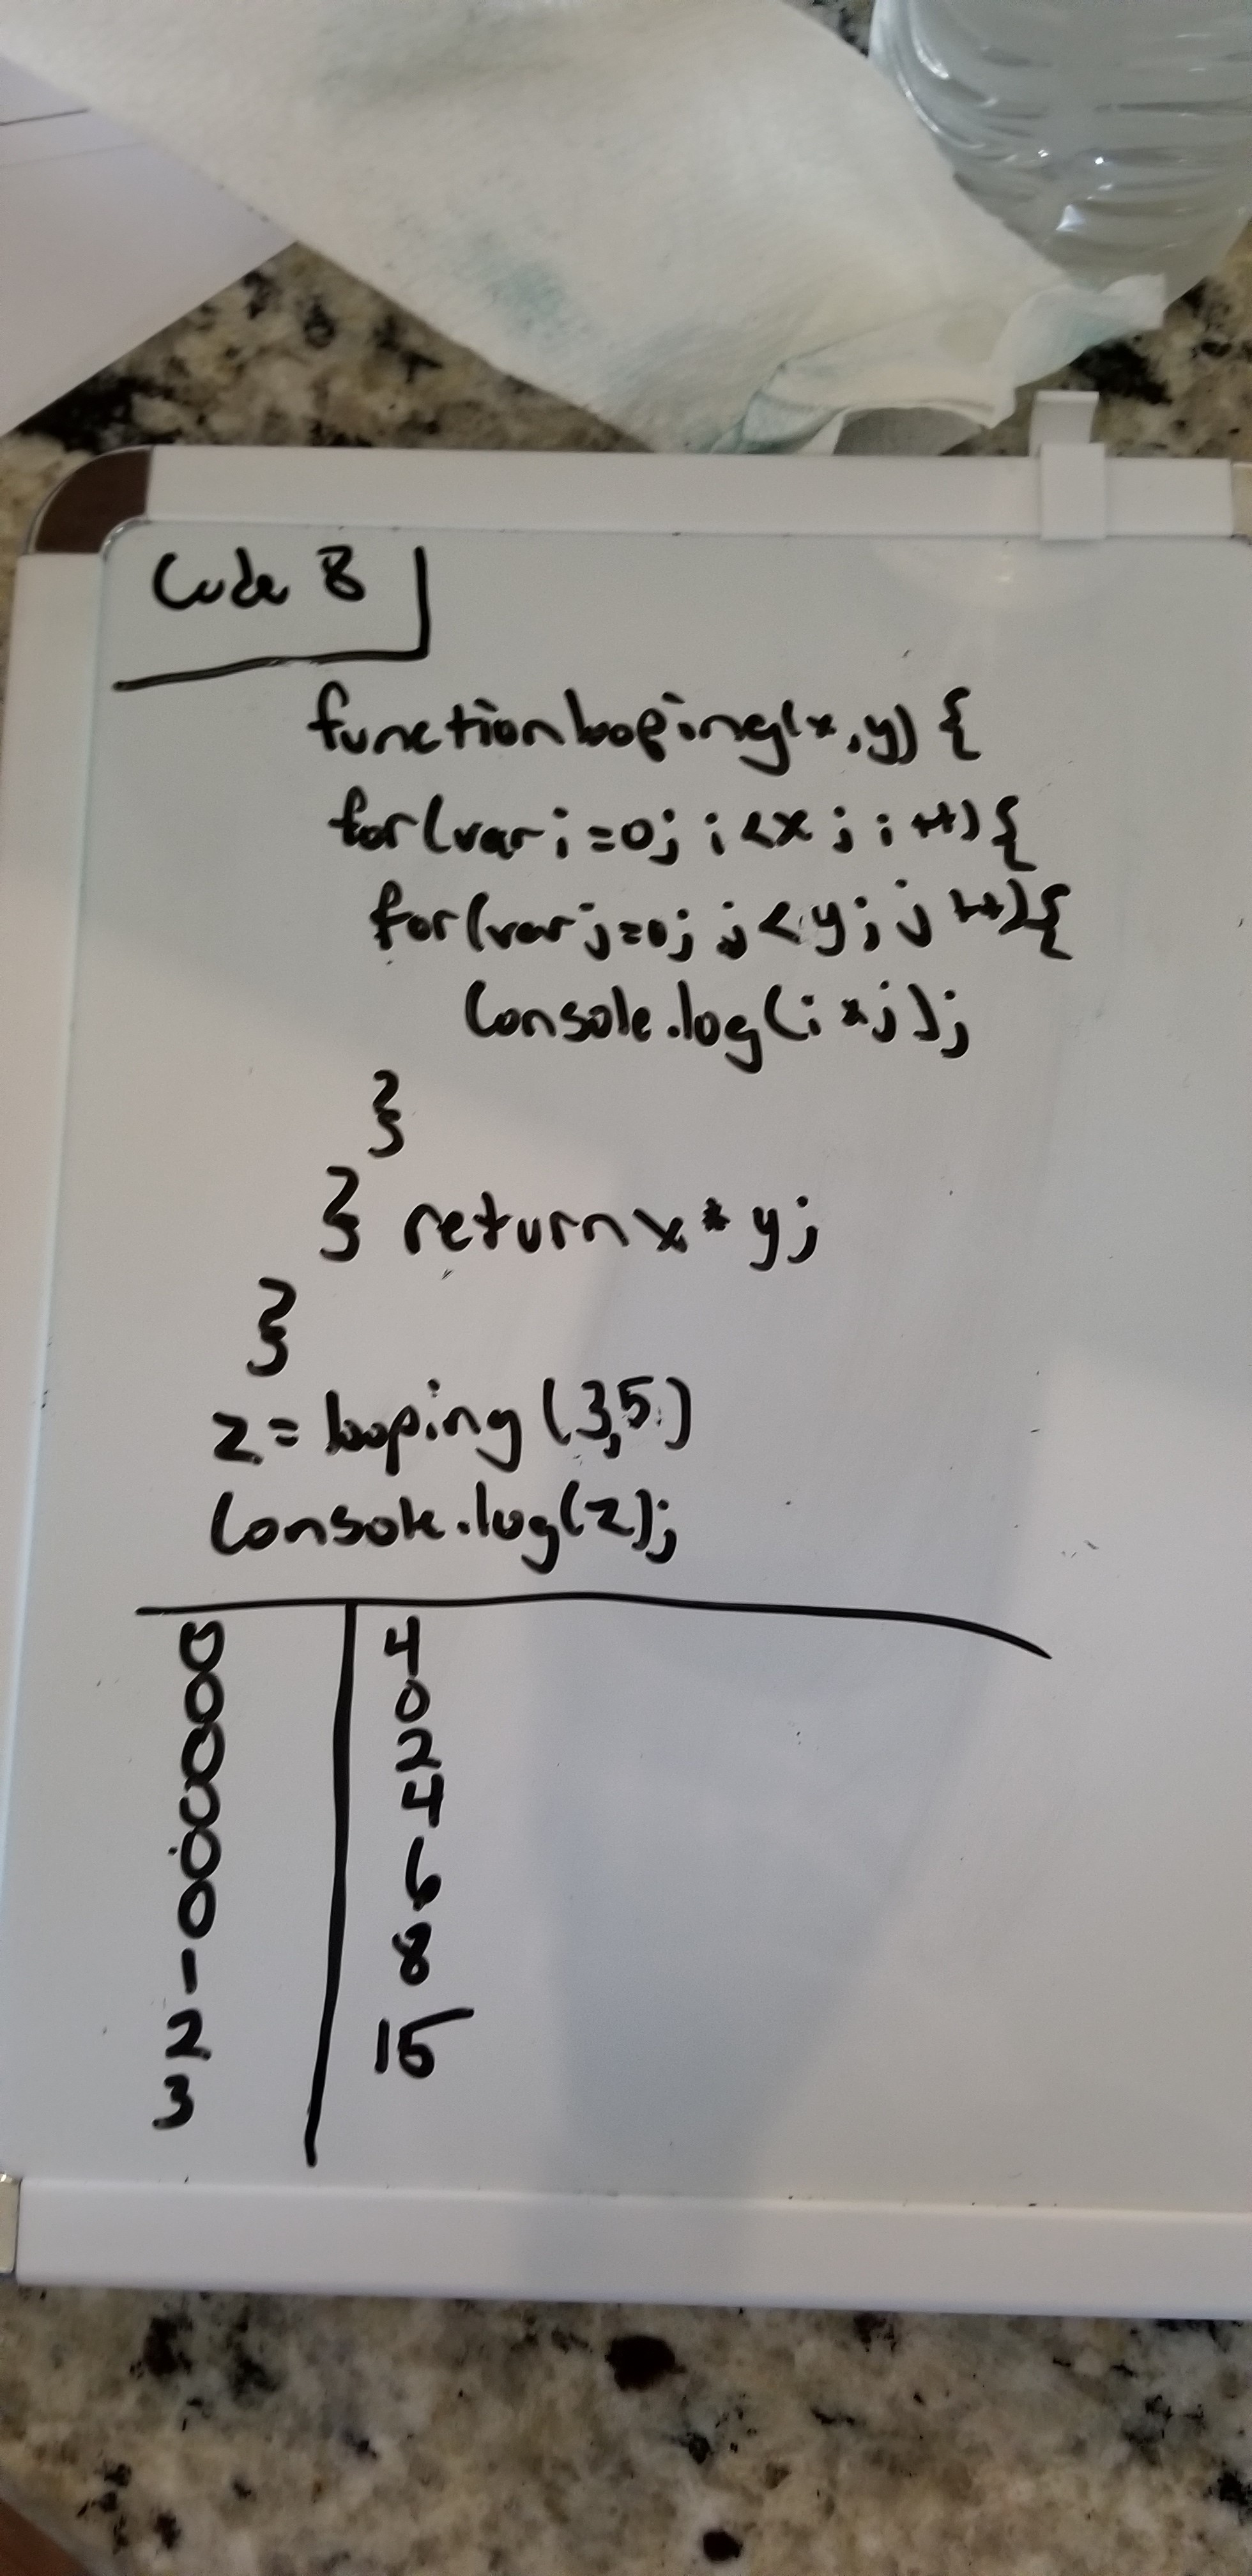 Code 8
function looping(x,y) {
for(var i=0; i<x; i++){
for(var j=0; j<y; j++){
Console.log(i*j);
}
} return x * y;
}
z = looping (3,5)
Console.log(z);
0 4
0 0
0 2
0 4
0 6
0 8
1 15
2
3